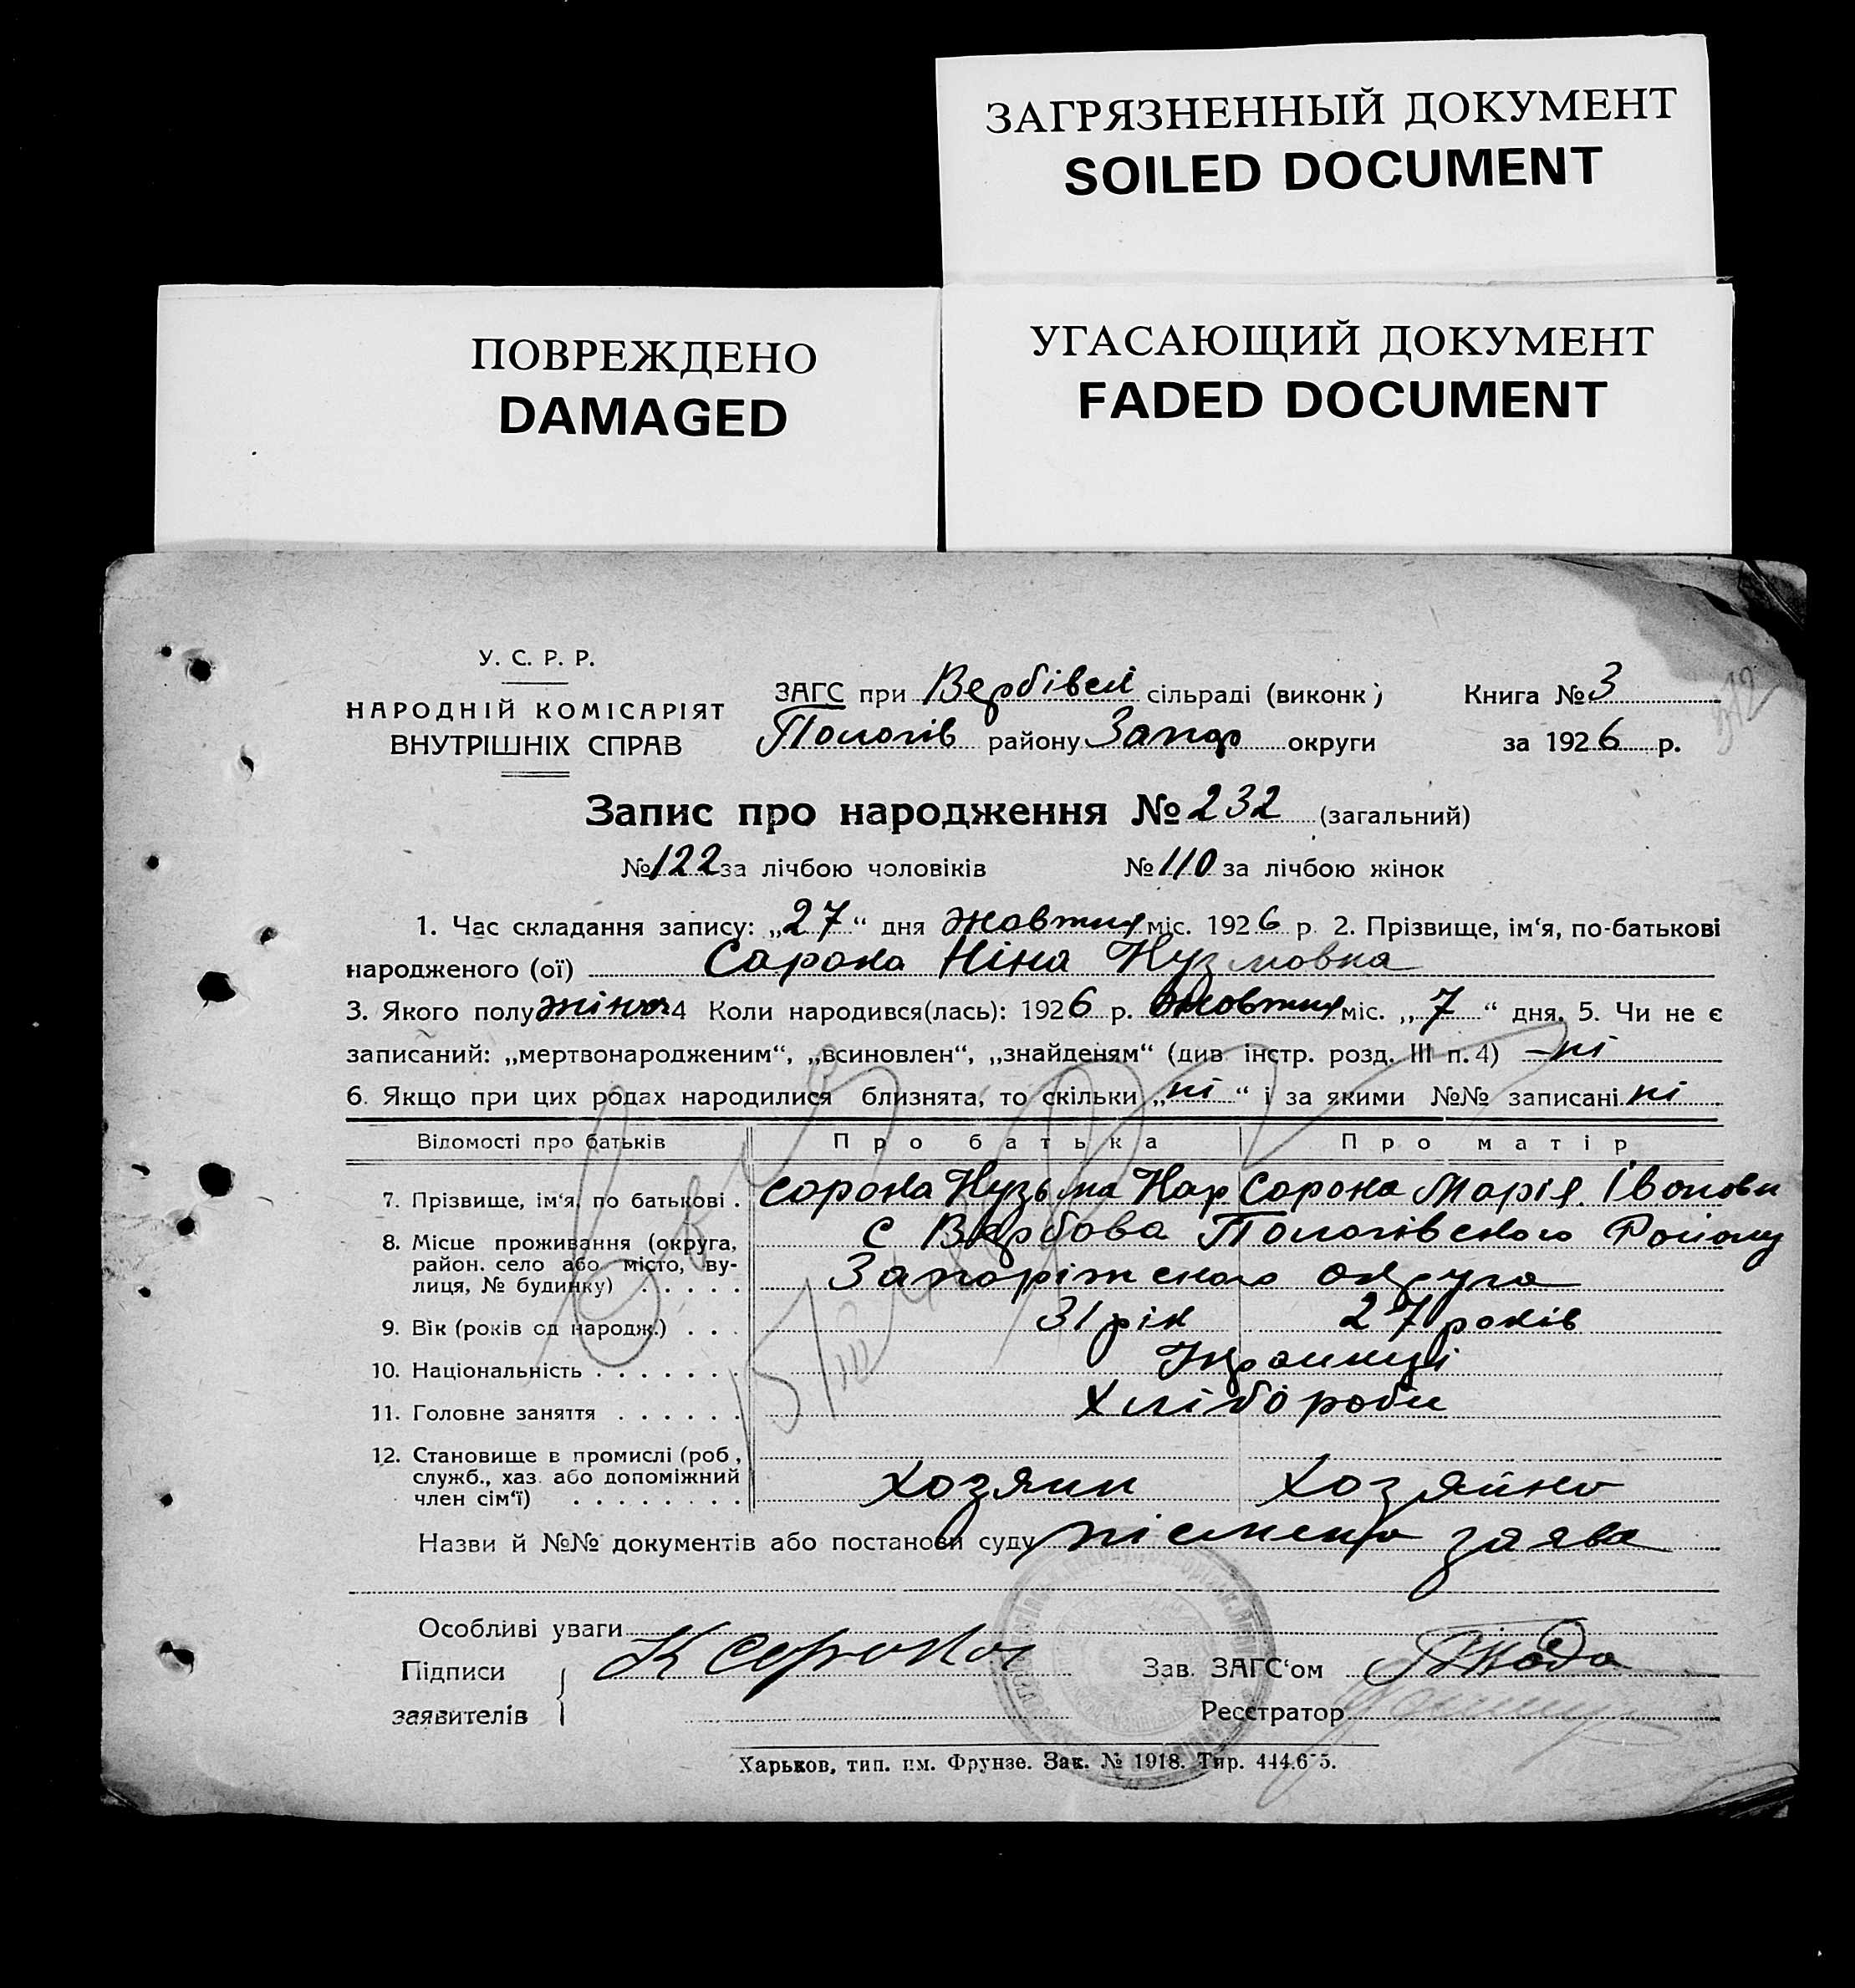 ЗАГРЯЗНЕННЫЙ ДОКУМЕНТ
SOILED DOCUMENT
ПОВРЕЖДЕНО
DAMAGED
УГАСАЮЩИЙ ДОКУМЕНТ
FADED DOCUMENT
У. С. Р. Р.
НАРОДНІЙ КОМІСАРІЯТ
ВНУТРІШНІХ СПРАВ
ЗАГС при Вербівскі сільраді (виконк) Книга № 3
Пологів району Запор округи за 1926 р.
Запис про народження № 232 (загальний)
№ 122 за лічбою чоловіків № 110 за лічбою жінок
1. Час складання запису: „27“ дня жовтня міс. 1926 р. 2. Прізвище, ім‘я, по-батькові
народженого (ої) Сарока Ніна Кузмовна
3. Якого полу жіноч 4 Коли народився(лась): 1926 р. жовтня міс. „7“ дня. 5. Чи не є
записаний: „мертвонародженим“, „всиновлен“, „знайденям“ (див. інстр. розд. III п. 4) – ні
6. Якщо при цих родах народилися близнята, то скільки „ні“ і за якими №№ записані ні
Відомості про батьків Про батька Про матір
7. Прізвище, ім‘я, по батькові . Сорока Кузьма Кар Сорока Марія Івоновн
8. Місце проживання (округа, район. село або місто, вулиця, № будинку) . . . . . с Вербова Пологівского Району
Запоріжского округа
9. Вік (років од народж.) . . . 31 рік 27 років
10. Національність . . . . . . . Украинці
11. Головне заняття . . . . . . Хлібороби
12. Становище в промислі (роб., служб., хаз. або допоміжний член сім‘ї) . . . . . . . . хозяин хозяйка
Назви й №№ документів або постанови суду пісмена заява
Особливі уваги
Підписи К Сорока Зав. ЗАГС‘ом
заявителів Реєстратор
Харьков, тип. им. Фрунзе. Зак. № 1918. Тир. 444.675.